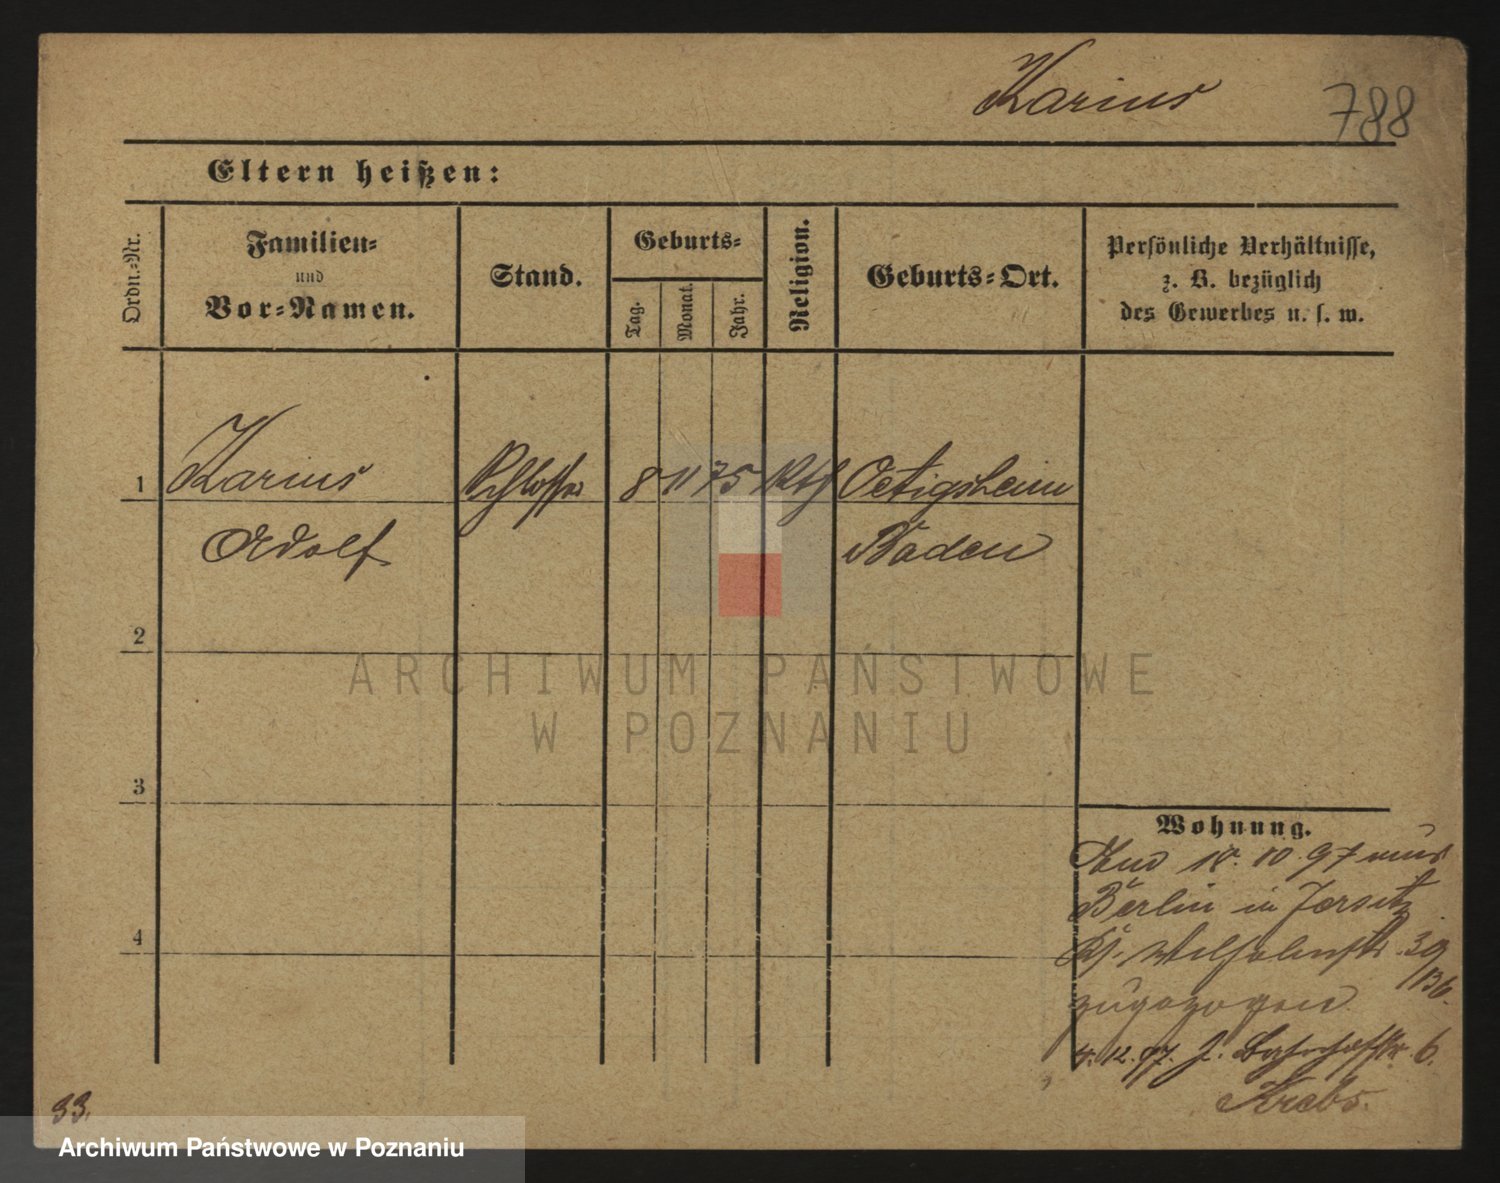 Karius 788
Eltern heißen:
Ordn.-Nr.
Familien-
und
Vor-Namen.
Stand.
Geburts-
Tag.
Monat.
Jahr.
Religion.
Geburts-Ort.
Persönliche Verhältnisse,
z. B. bezüglich
des Gewerbes u. s. w.
1 Karius Schlosser 8 11 75 Kth Oetigsheim
Adolf Baden
2
3
4
Wohnung.
10. 97 aus
Berlin in Jersitz
Wilhelmstr. 30
zugezogen
4. 12. 97. J. Bahnhofstr. 6.
Krebs.
33.
ARCHIWUM PAŃSTWOWE
W POZNANIU
Archiwum Państwowe w Poznaniu